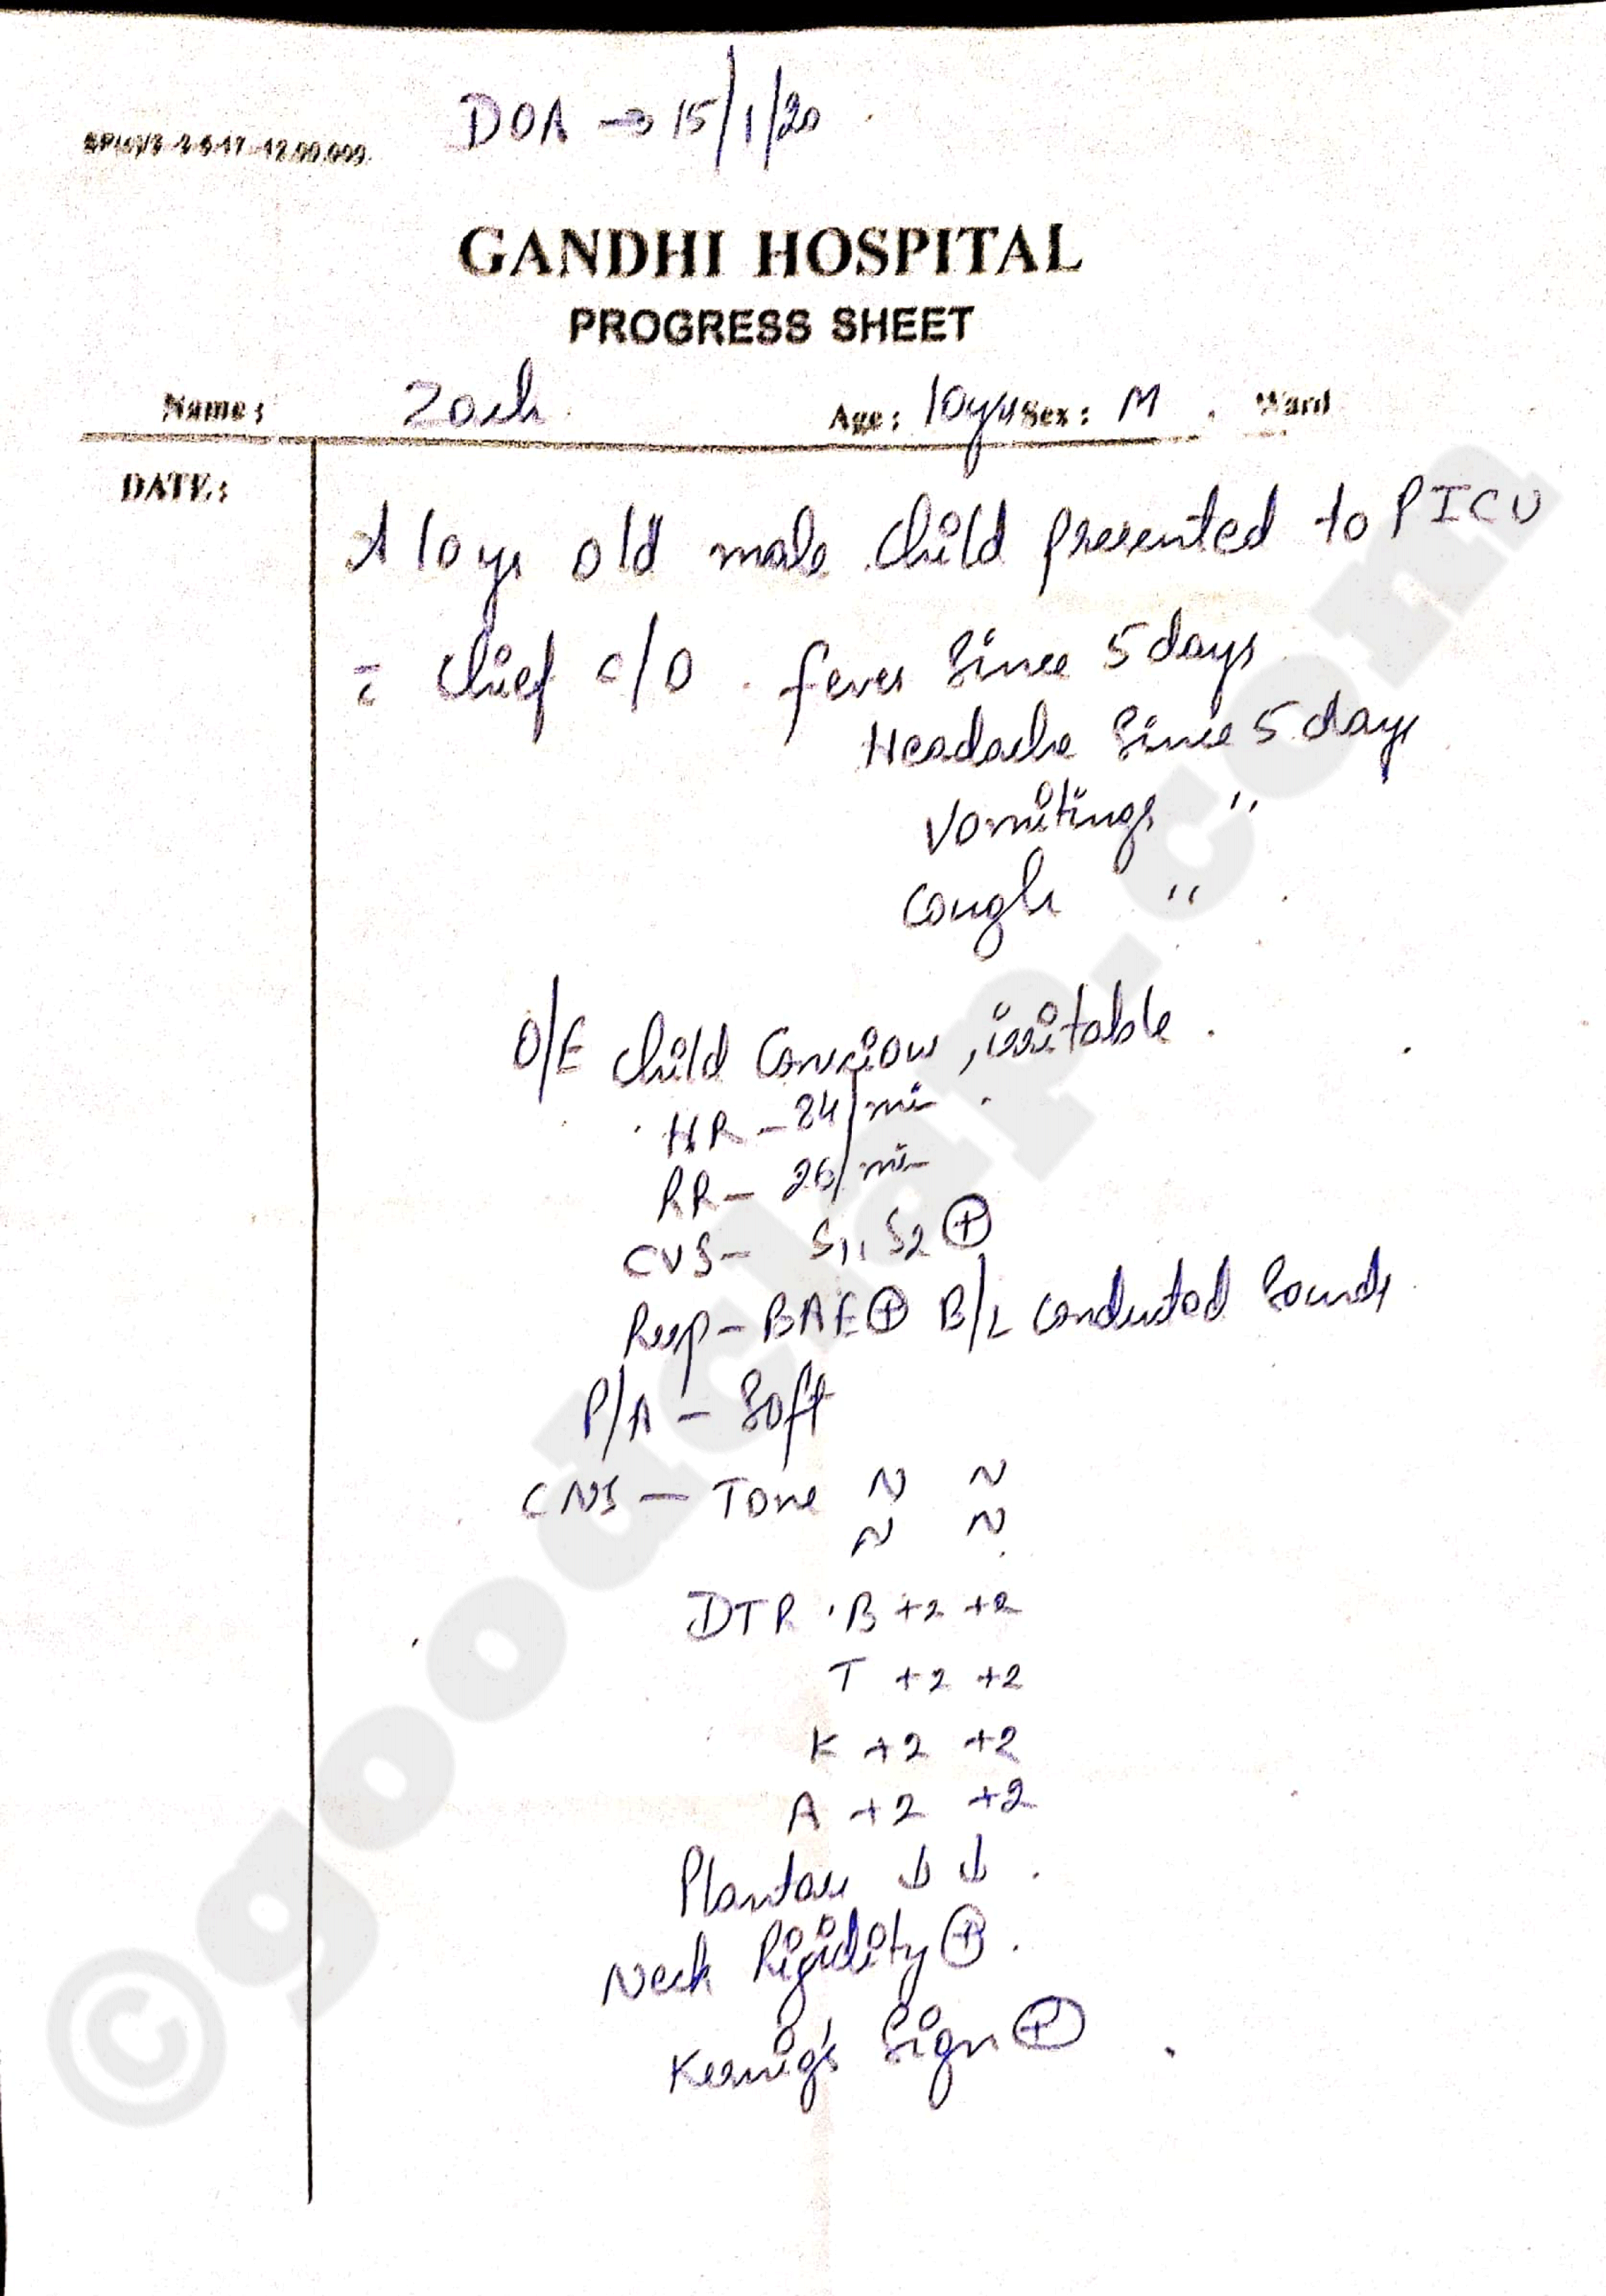 DOA → 15/1/20
GANDHI HOSPITAL
PROGRESS SHEET
Name: Zach Age: 10yrs Sex: M. Ward
DATE:
A 10 yr old male child presented to PICU
c̄ chief c/o fever since 5 days
Headache since 5 days
Vomitings "
cough "
O/E child Conscious, irritable.
HR - 84/min.
RR - 26/min
CVS - S1, S2 ⊕
Resp - BAE ⊕ B/L conducted sounds
P/A - Soft
CNS - Tone N N
N N
DTR B +2 +2
T +2 +2
K +2 +2
A +2 +2
Plantar ↓ ↓.
Neck Rigidity ⊕.
Kernig's Sign ⊕
©goodclap.com